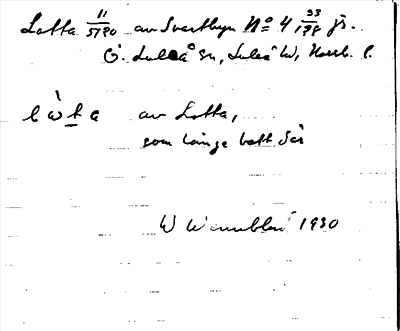 Lotta 11/5190 av Svartbyn No 4 33/198 jr.
Ö. Luleå sn, Luleå W, Norrb. l.
låta av Lotta,
som länge bott där
W Wennblad 1930